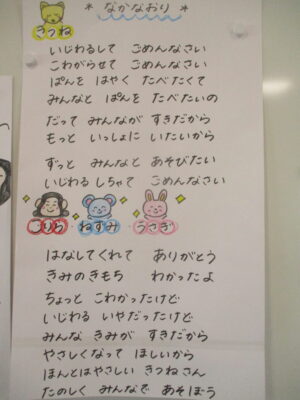 * なかなおり *
きつね
いじわるして ごめんなさい
こわがらせて ごめんなさい
ぱんを はやく たべたくて
みんなと ぱんを たべたいの
だって みんなが すきだから
もっと いっしょに いたいから
ずっと みんなと あそびたい
いじわる しちゃて ごめんなさい
ごりら ねずみ うさぎ
はなしてくれて ありがとう
きみのきもち わかったよ
ちょっと こわかったけど
いじわる いやだったけど
みんな きみが すきだから
やさしくなって ほしいから
ほんとはやさしい きつねさん
たのしく みんなで あそぼう